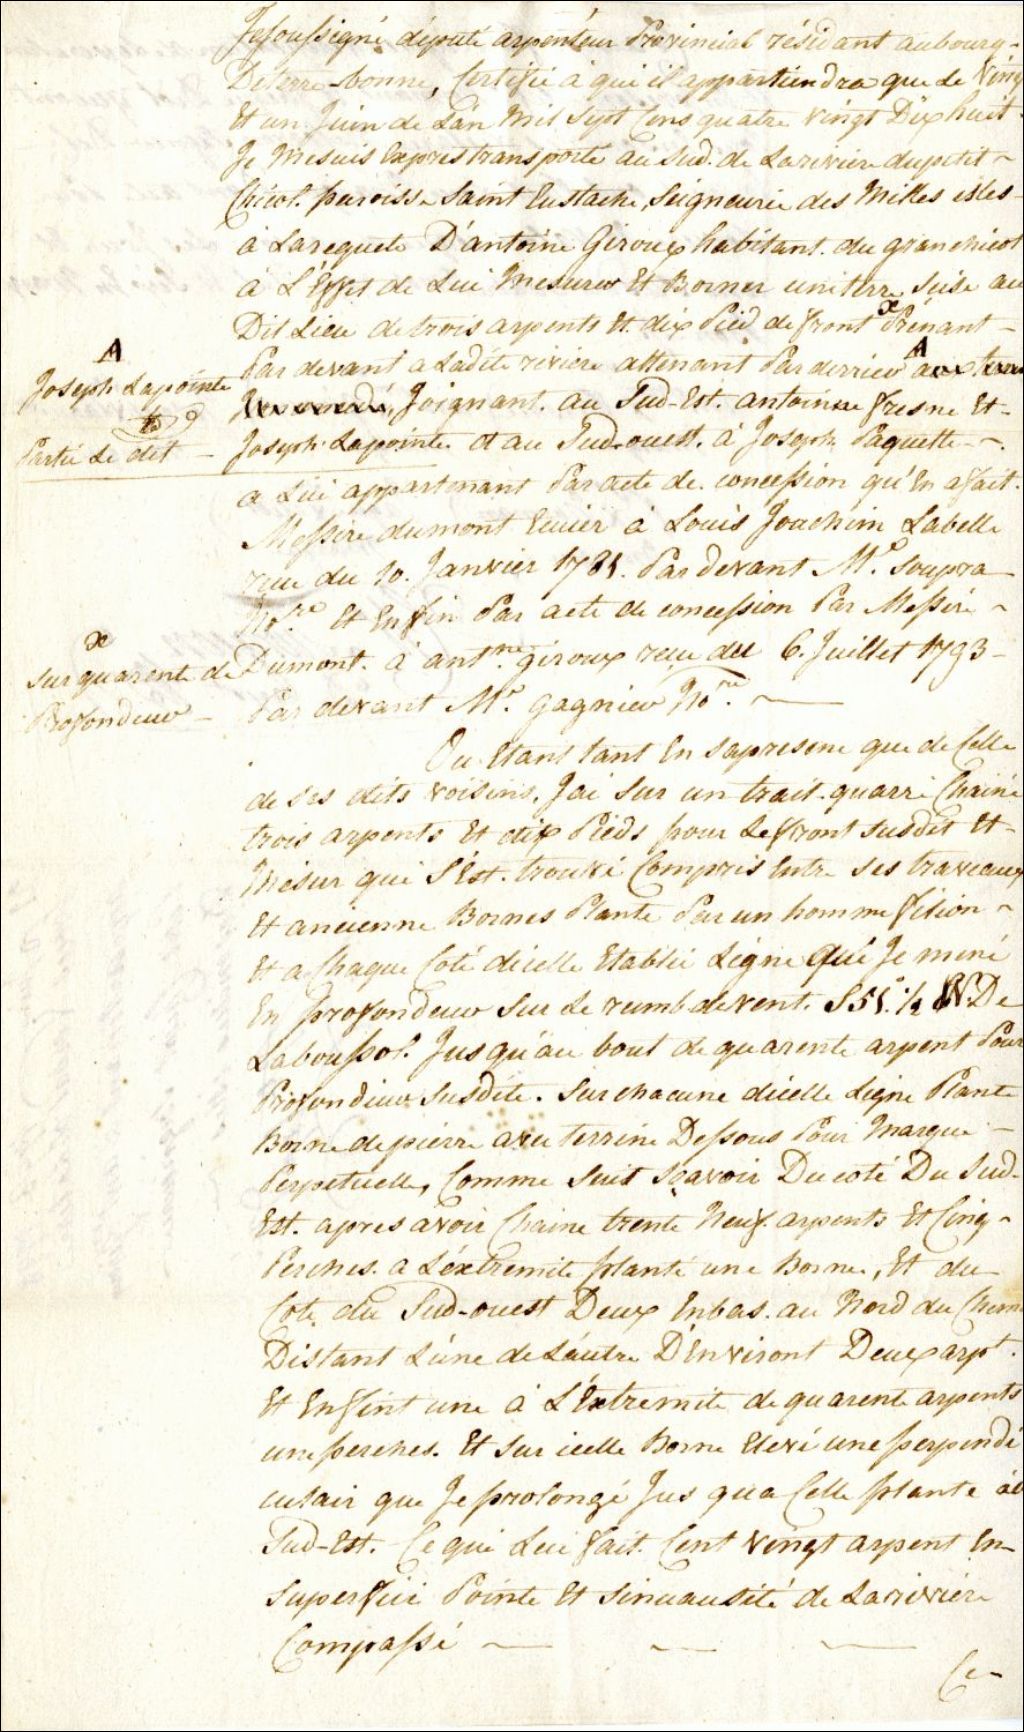 Jesoussigné député arpenteur Provincial résidant aubourg-
Deterre-bonne, Certifie à qui il appartiendra que Le Vingt
Et un Juin de Lan Mil Sept Cens quatre Vingt Dix huit
Je Mesuis Exprestransporté au Sud. de Lariviere dupetit-
Chicot. paroisse Saint Eustache, Seigneurie des Milles isles-
à Larequete D'antoine Giroux habitant. du granchicot
à L'Effet de Lui Mesurer Et Borner uneterre, Suise au
Dit Lieu detrois arpents Et. dix Pied defront x Prénant-
Par devant a Ladite riviere attenant Parderrier A aux
Joignant. au Sud-Est. antoinne fresne Et-
Joseph Lapointe. et au Sud-ouest. à Joseph Paquette-
a Lui appartenant Par acte de. concession qu'En afait.
Messire dumont Ecuier à Louis Joachim Labelle
reçu du 10. Janvier 1781. Pardevant Mr. Soupra
No.re Et Enfin Par acte de concession Par Messire-
Dumont. à ant.ne giroux reçu du 6. Juillet 1793-
Par devant Mr. Gagnier No.re
A
Joseph Lapointe
Partie Le dit
x
Sur quarente de
Profondeur-
Ou Etant tant En sapresene que de Celle
de Ses dits voisins, Jai Sur un trait-quarré Chainé
trois arpents Et dix Pieds pour Lefront Susdit Et-
Mesur qui S'Est. trouvé Compris Entre Ses traveaux
Et ancienne Bornes Planté Par un homme filion-
Et a Chaque Coté dicelle Etablie Ligne Que Je mené
En profondeur Sur Le rumb devent. S 51.° 1/2 W. De
Laboussol. Jusqu'au bout dequarente arpent Pour
Profondeur Susdite. Sur chacune dicelle Ligne Planté
Borne depierre avec terrine Dessous Pour Marque-
Perpetuelle, Comme Suit Sçavoir Du coté Du Sud-
Est. apres avoir Chaine trente Neuf arpents Et Cinq-
Perches. a Léxtremite planté une Borne, Et du
Coté du Sud-ouest Deux Enbas. au Nord du Chemin
Distant L'une de Lautre D'Environt Deux arpt.
Et Enfint une à L'Extremite de quarente arpents
une perches. Et Sur icelle Borne Elevé une perpendi
culair que Jeprolongé Jus qua Celle planté au
Sud-Est. Ce qui Lui fait. Cent Vingt arpent En-
Superficie Pointe Et Sinuausité de Lariviére
Compassé
Ce-